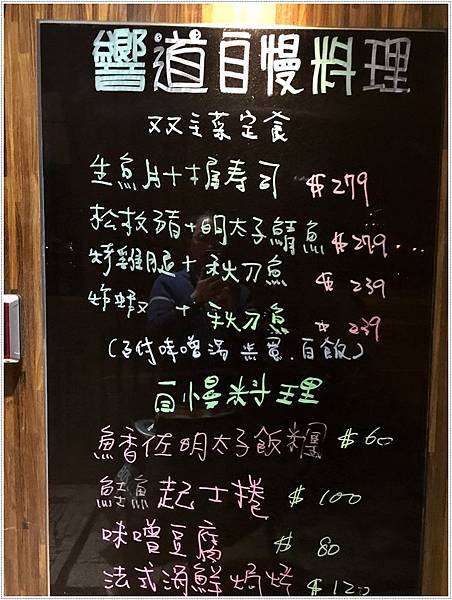 響道自慢料理
双主菜定食
生魚片+握寿司 $279
松板豬+明太子鯖魚 $279...
烤雞腿+秋刀魚 $239
炸蝦+秋刀魚 $239
味噌湯 白飯)
自慢料理
魚香佐明太子飯糰 $60
鮭魚起士捲 $100
味噌豆腐 $80
法式海鮮焗烤 $120